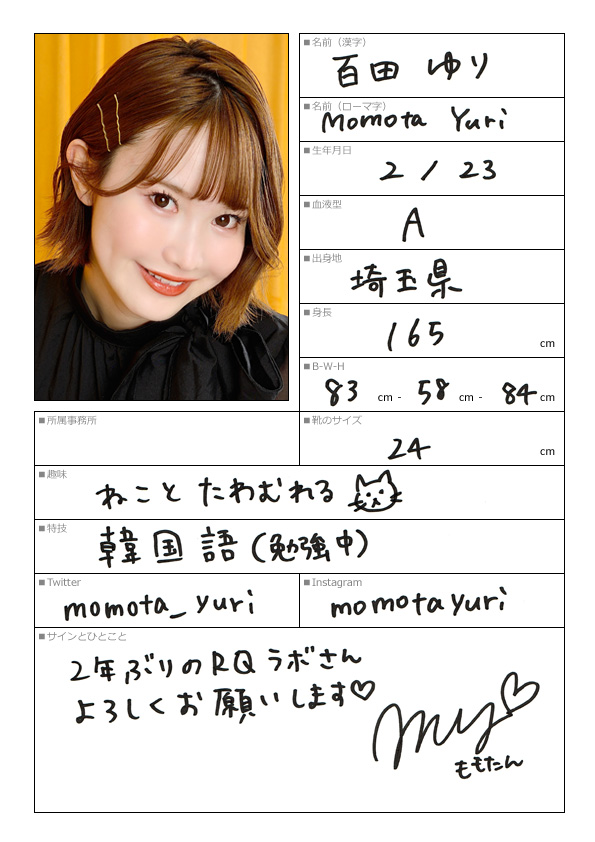 ■名前（漢字）
百田 ゆり
■名前（ローマ字）
Momota Yuri
■生年月日
2 / 23
■血液型
A
■出身地
埼玉県
■身長
165 cm
■B-W-H
83 cm - 58 cm - 84 cm
■所属事務所
■靴のサイズ
24 cm
■趣味
ねこと たわむれる
■特技
韓国語（勉強中）
■Twitter
momota_yuri
■Instagram
momotayuri
■サインとひとこと
2年ぶりのRQラボさん
よろしくお願いします♡
my♡
ももたん